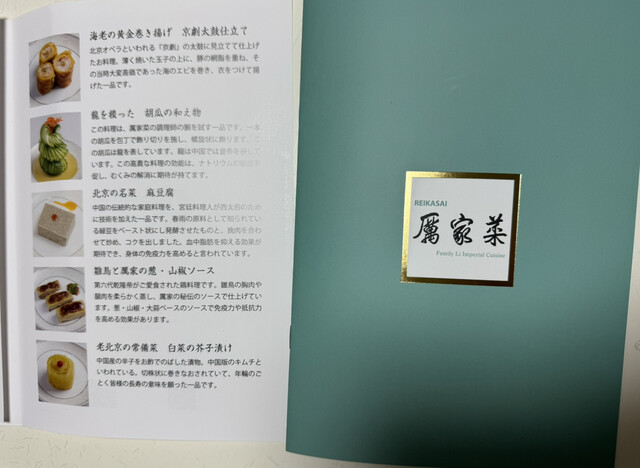 海老の黄金巻き揚げ 京劇太鼓仕立て
北京オペラといわれる『京劇』の太鼓に見立てて仕上げ
たお料理。薄く焼いた玉子の上に、豚の網脂を重ね、そ
の当時大変高価であった海のエビを巻き、衣をつけて揚
げた一品です。
龍を模った 胡瓜の和え物
この料理は、厲家菜の調理師の腕を試す一品です。一本
の胡瓜を包丁で飾り切りを施し、螺旋状に飾ります。こ
の胡瓜は龍を表しています。龍は中国では皇帝を
います。この高貴な料理の効能は、ナトリウムの
促し、むくみの解消に期待が持てます。
北京の名菜 麻豆腐
中国の伝統的な家庭料理を、宮廷料理人が西太后のため
に技術を加えた一品です。春雨の原料として知られてい
る緑豆をペースト状にし発酵させたものと、挽肉を合わ
せて炒め、コクを出しました。血中脂肪を抑える効果が
期待でき、身体の免疫力を高めると言われています。
雛鳥と厲家の葱・山椒ソース
第六代乾隆帝がご愛食された鶏料理です。雛鳥の胸肉や
腿肉を柔らかく蒸し、厲家の秘伝のソースで仕上げてい
ます。葱・山椒・大蒜ベースのソースで免疫力や抵抗力
を高める効果があります。
老北京の常備菜 白菜の芥子漬け
中国産の辛子をお酢でのばした漬物。中国版のキムチと
いわれている。切株状に巻きなおされていて、年輪のご
とく皆様の長寿の意味を願った一品です。
REIKASAI
厲家菜
Family Li Imperial Cuisine